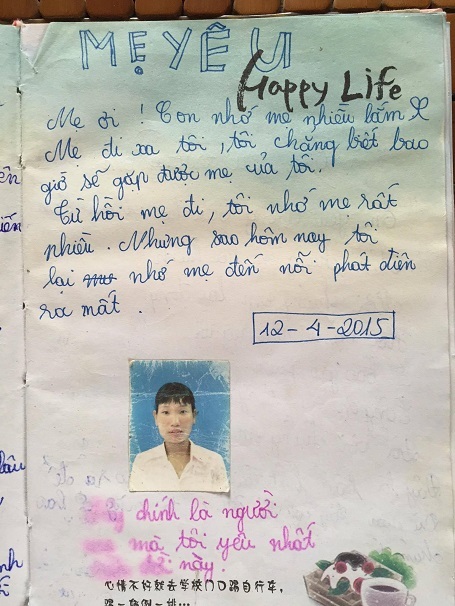 MẸ YÊU
Happy Life
Mẹ ơi! Con nhớ mẹ nhiều lắm
Mẹ đi xa tôi, tôi chẳng biết bao
giờ sẽ gặp được mẹ của tôi.
Từ hồi mẹ đi, tôi nhớ mẹ rất
nhiều. Nhưng sao hôm nay tôi
lại nhớ mẹ đến nỗi phát điên
ra mất.
12-4-2015
chính là người
mà tôi yêu nhất
này!
心情不好就去学校门口踢自行车,
踢一辆倒一排...